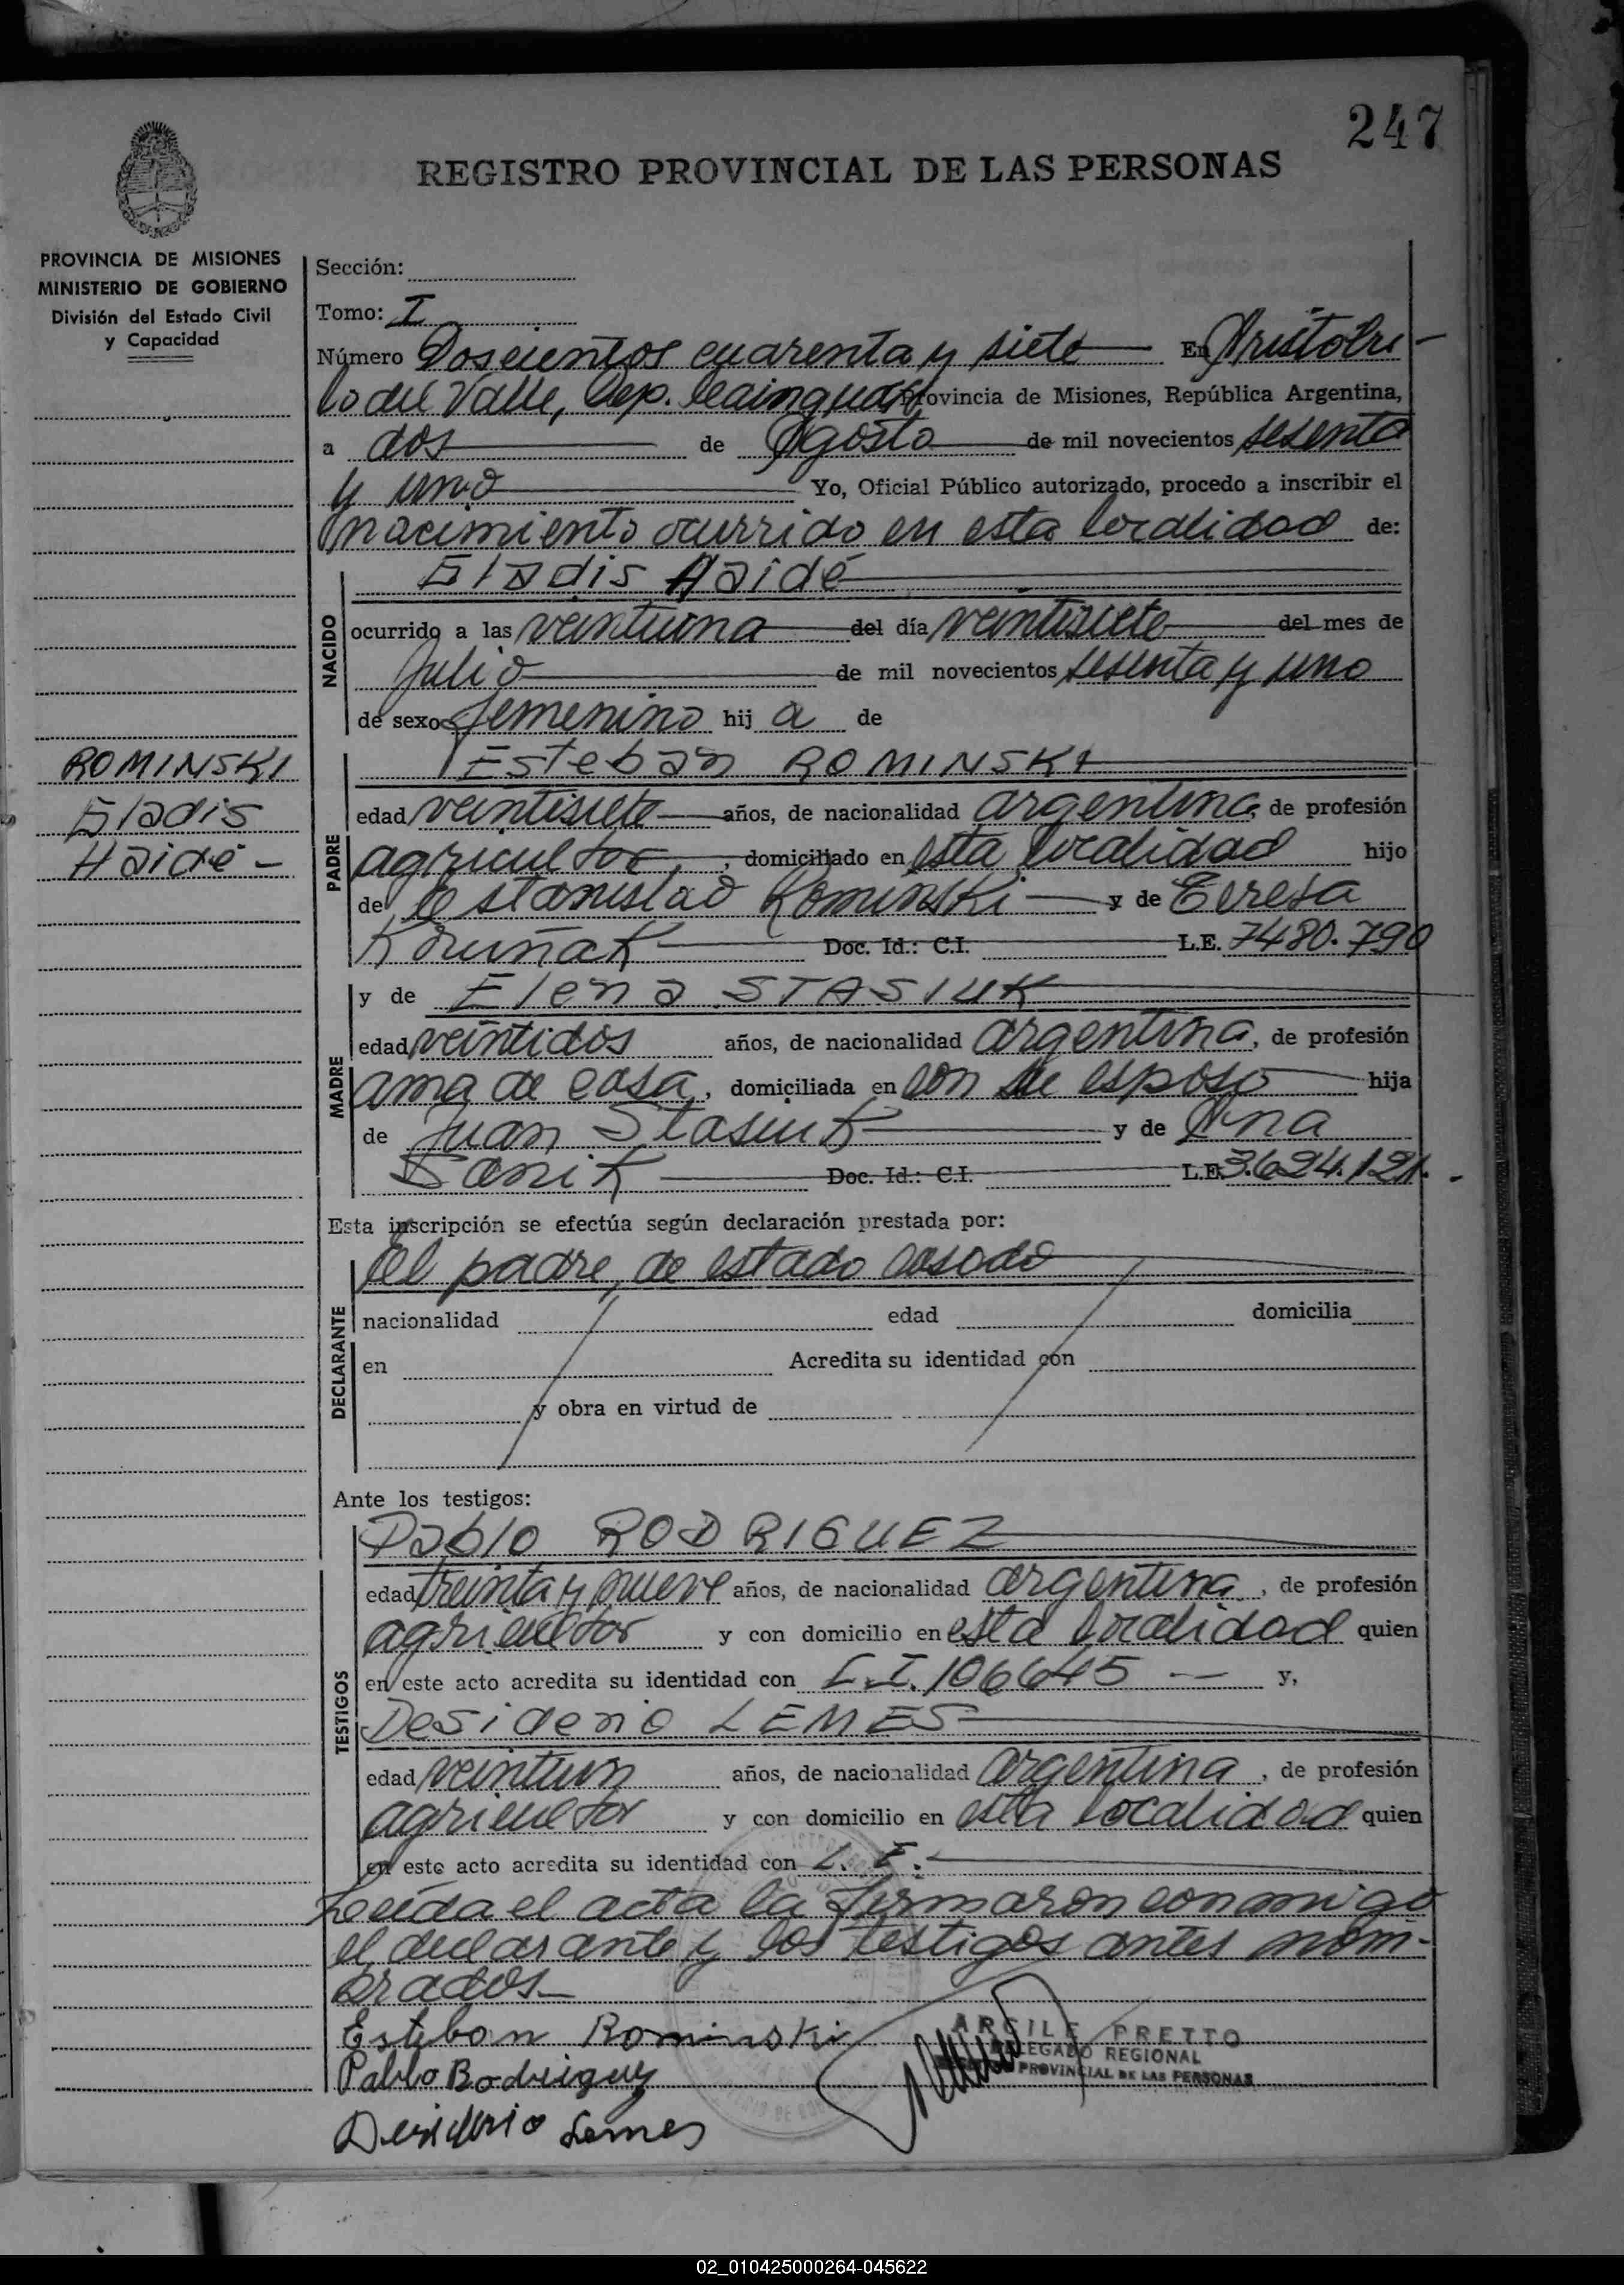 247
REGISTRO PROVINCIAL DE LAS PERSONAS
PROVINCIA DE MISIONES
MINISTERIO DE GOBIERNO
División del Estado Civil
y Capacidad
Sección:
Tomo: I
Número Doscientos cuarenta y siete En Aristobu-
lo del Valle, Dep. Cainguás, Provincia de Misiones, República Argentina,
a dos de Agosto de mil novecientos sesenta
y uno Yo, Oficial Público autorizado, procedo a inscribir el
nacimiento ocurrido en esta localidad de:
Gladis Haidé
NACIDO
ocurrido a las veintiuna del día veintisiete del mes de
Julio de mil novecientos sesenta y uno
de sexo femenino hij a de
ROMINSKI
Gladis
Haidé -
Esteban ROMINSKI
PADRE
edad veintisiete años, de nacionalidad argentina, de profesión
agricultor, domiciliado en esta localidad hijo
de Estanislao Rominski y de Teresa
Koruñak Doc. Id.: C.I. L.E. 7480.790
MADRE
y de Elena STASIUK
edad veintidos años, de nacionalidad argentina, de profesión
ama de casa, domiciliada en con su esposo hija
de Juan Stasiuk y de Ana
Danik Doc. Id.: C.I. L.E. 3.624.121.-
Esta inscripción se efectúa según declaración prestada por:
DECLARANTE
el padre, de estado casado
nacionalidad edad domicilia
en Acredita su identidad con
y obra en virtud de
Ante los testigos:
TESTIGOS
Pablo RODRIGUEZ
edad treinta y nueve años, de nacionalidad argentina, de profesión
agricultor y con domicilio en esta localidad quien
en este acto acredita su identidad con C.I. 106645 y,
Desiderio LEMES
edad veintiun años, de nacionalidad argentina, de profesión
agricultor y con domicilio en esta localidad quien
en este acto acredita su identidad con L.E.
Leída el acta la firmaron conmigo
el declarante y los testigos antes nom-
brados
Esteban Rominski
Pablo Rodriguez
Desiderio Lemes
ARGILE PRETTO
DELEGADO REGIONAL
PROVINCIAL DE LAS PERSONAS
02_010425000264-045622